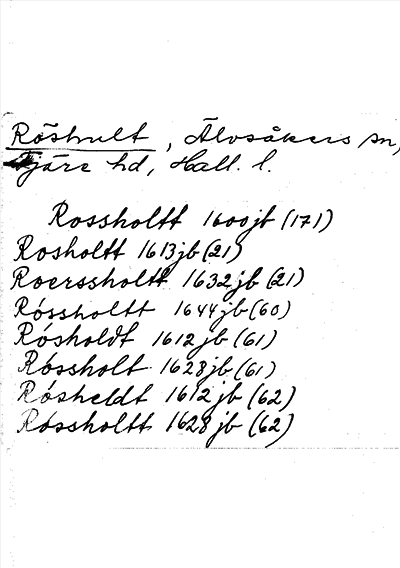 Röshult, Älvsåkers sn,
Fjäre hd, Hall. l.
Rossholtt 1600jb (171)
Rosholtt 1613jb (21)
Roerssholtt 1632jb (21)
Róssholtt 1644jb (60)
Rósholdt 1612jb (61)
Róssholt 1628jb (61)
Rósheldt 1612jb (62)
Róssholtt 1628jb (62)